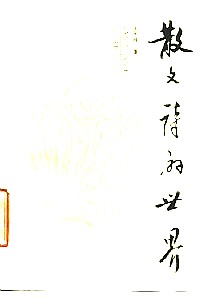 散文诗的世界